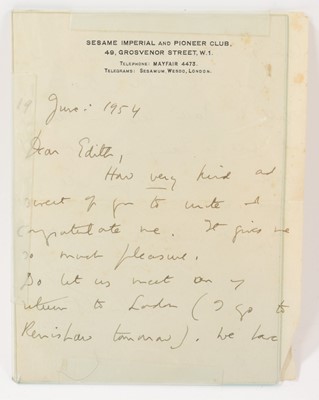 SESAME IMPERIAL AND PIONEER CLUB,
49, GROSVENOR STREET, W.1.
TELEPHONE: MAYFAIR 4473.
TELEGRAMS: SESAMUM, WESDO, LONDON.
19 June: 1954
Dear Edith,
How very kind and
sweet of you to write &
congratulate me. It gives me
so much pleasure.
Do let us meet on my
return to London (I go to
Renishaw tomorrow). We have